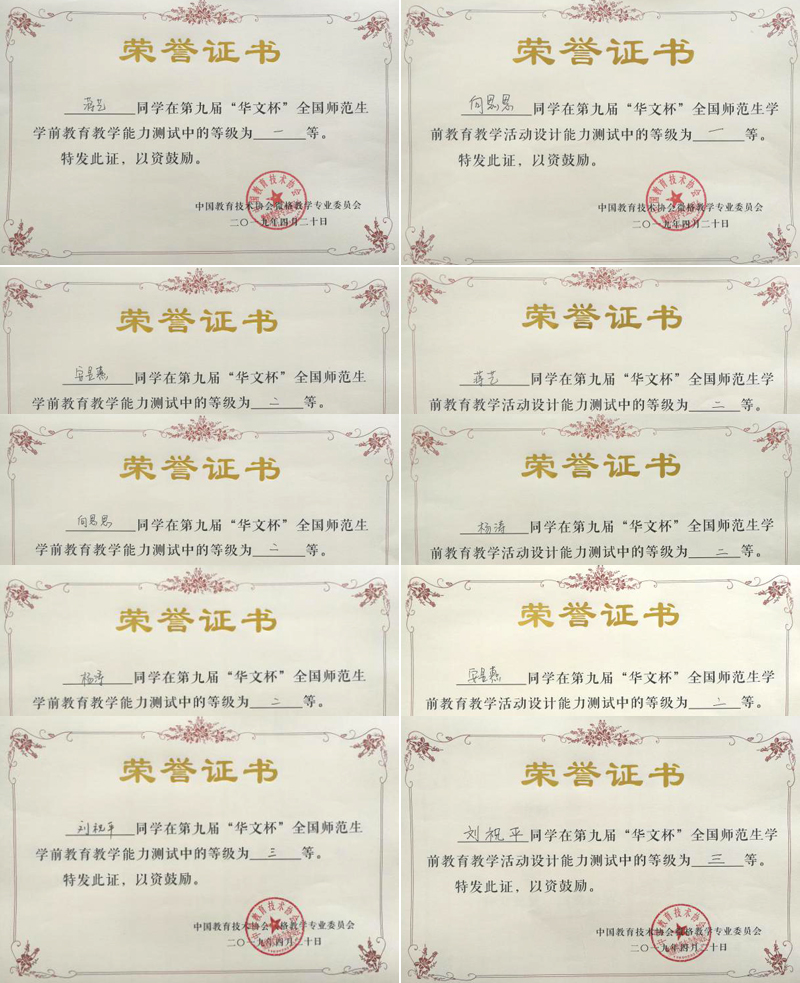 荣誉证书
蒋艺同学在第九届“华文杯”全国师范生
学前教育教学能力测试中的等级为一等。
特发此证，以资鼓励。
中国教育技术协会微格教学专业委员会
二〇一九年四月二十日
荣誉证书
向思思同学在第九届“华文杯”全国师范生学
前教育教学活动设计能力测试中的等级为一等。
特发此证，以资鼓励。
中国教育技术协会微格教学专业委员会
二〇一九年四月二十日
荣誉证书
同学在第九届“华文杯”全国师范生
学前教育教学能力测试中的等级为二等。
荣誉证书
蒋艺同学在第九届“华文杯”全国师范生学
前教育教学活动设计能力测试中的等级为二等。
荣誉证书
向思思同学在第九届“华文杯”全国师范生
学前教育教学能力测试中的等级为二等。
荣誉证书
杨涛同学在第九届“华文杯”全国师范生学
前教育教学活动设计能力测试中的等级为二等。
荣誉证书
杨涛同学在第九届“华文杯”全国师范生
学前教育教学能力测试中的等级为二等。
荣誉证书
同学在第九届“华文杯”全国师范生学
前教育教学活动设计能力测试中的等级为二等。
荣誉证书
刘祝平同学在第九届“华文杯”全国师范生
学前教育教学能力测试中的等级为三等。
特发此证，以资鼓励。
中国教育技术协会微格教学专业委员会
二〇一九年四月二十日
荣誉证书
刘祝平同学在第九届“华文杯”全国师范生学
前教育教学活动设计能力测试中的等级为三等。
特发此证，以资鼓励。
中国教育技术协会微格教学专业委员会
二〇一九年四月二十日